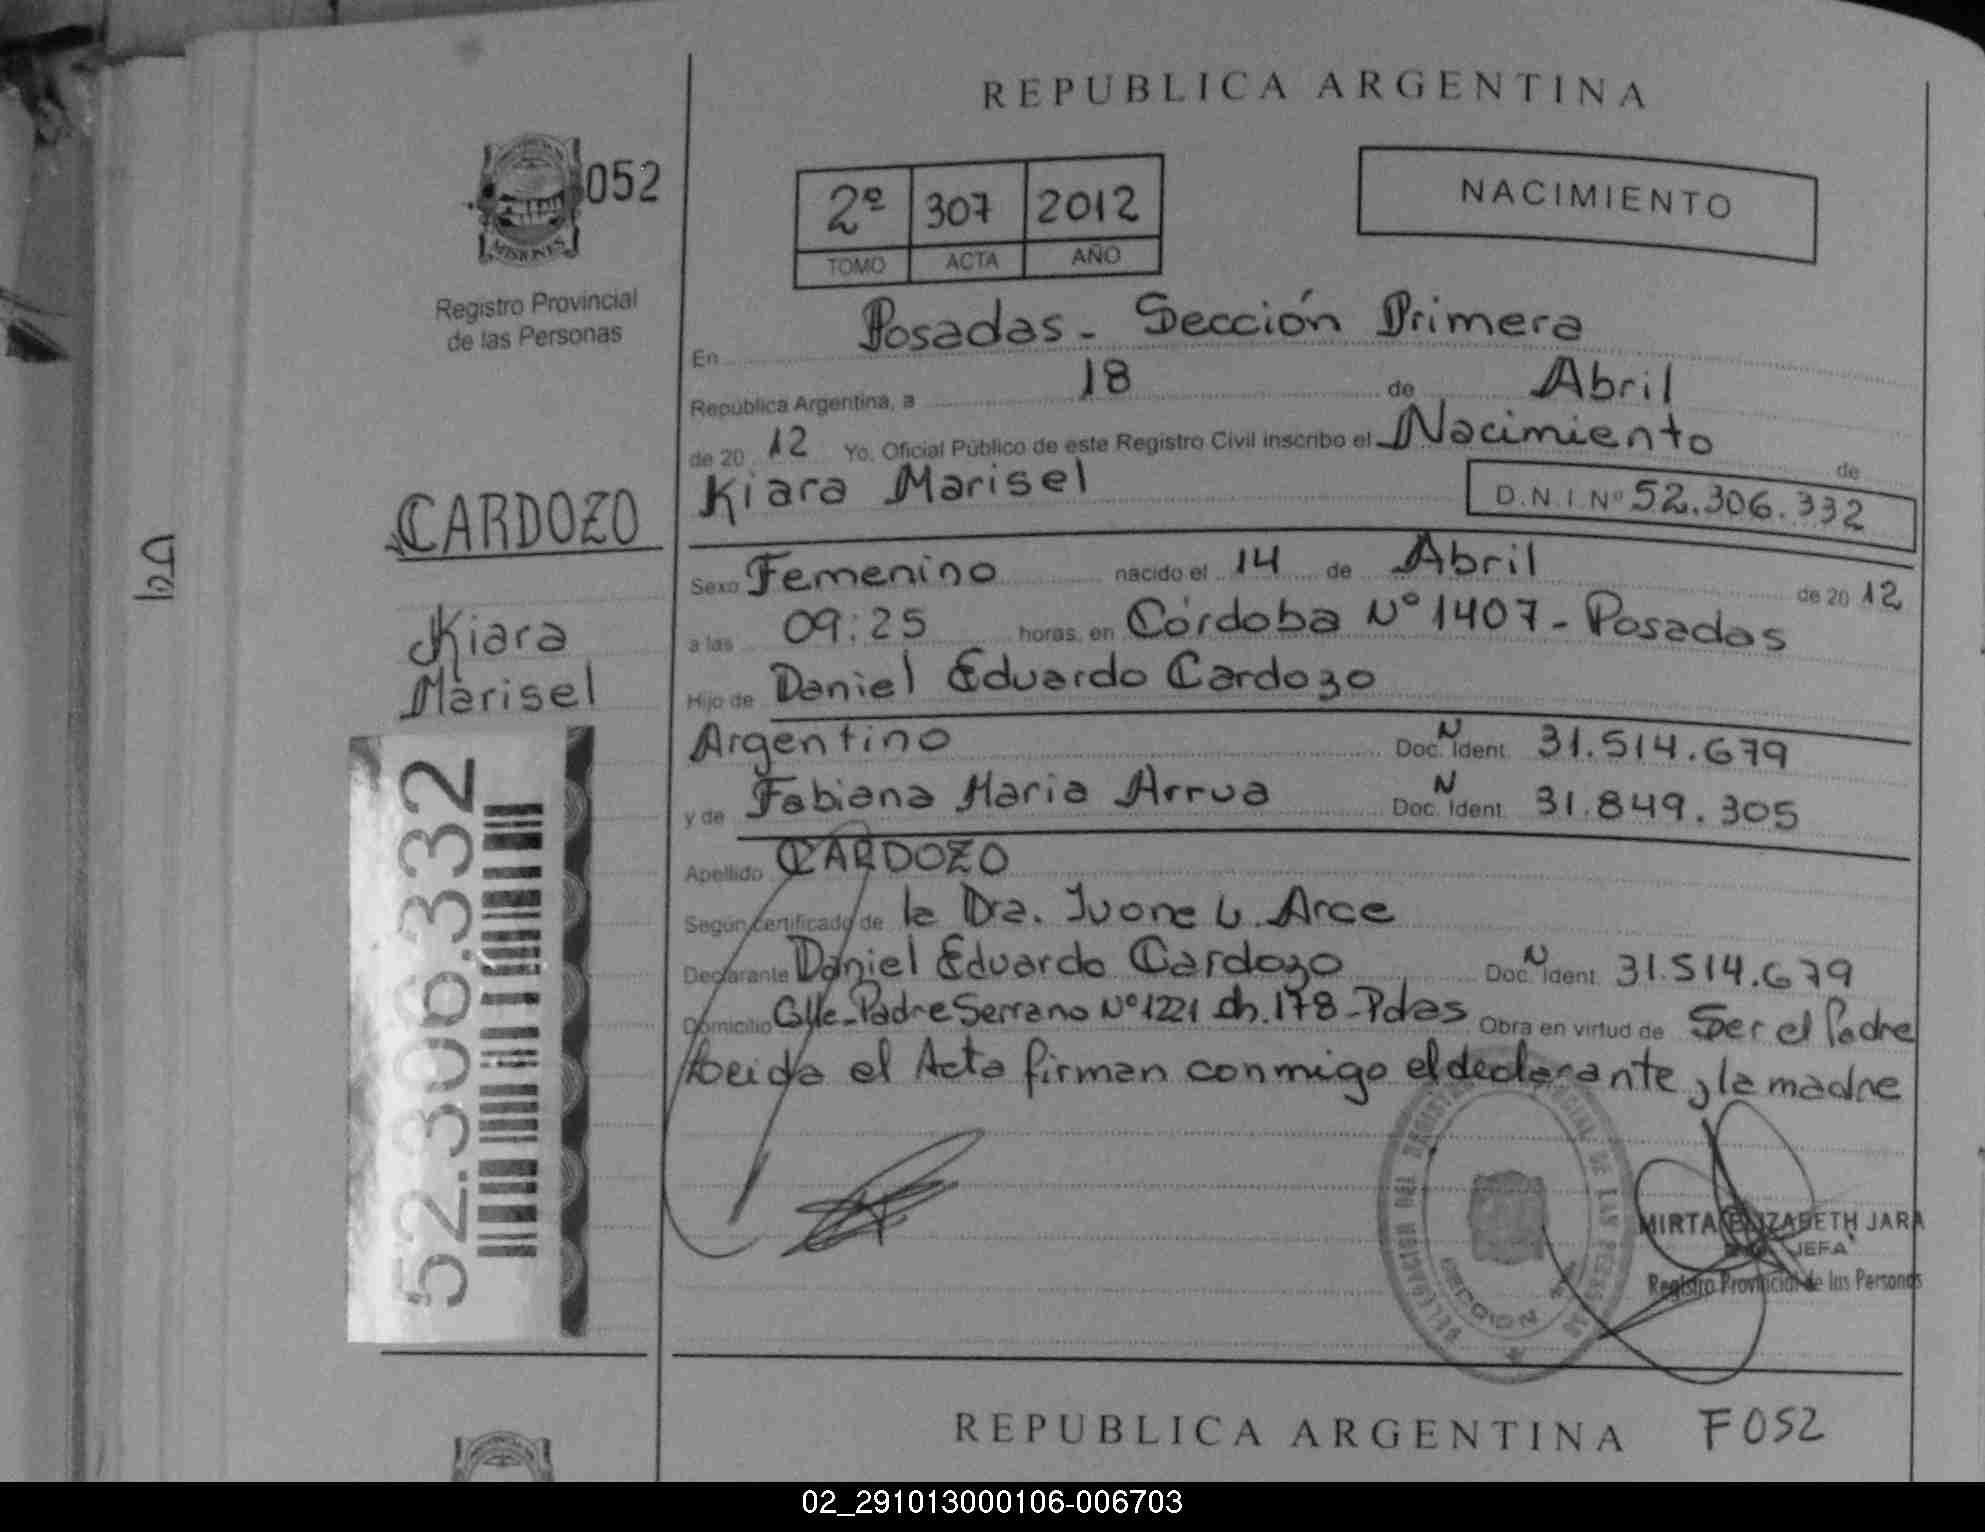 REPUBLICA ARGENTINA
MISIONES
052
Registro Provincial
de las Personas
2º 307 2012
TOMO ACTA AÑO
NACIMIENTO
En Posadas - Sección Primera
República Argentina, a 18 de Abril
de 20 12 Yo, Oficial Público de este Registro Civil inscribo el Nacimiento de
Kiara Marisel
D.N.I. Nº 52.306.332
CARDOZO
Kiara
Marisel
52.306.332
Sexo Femenino nacido el 14 de Abril de 20 12
a las 09:25 horas, en Córdoba Nº 1407 - Posadas
Hijo de Daniel Eduardo Cardozo
Argentino Doc. N Ident. 31.514.679
y de Fabiana Maria Arrua Doc. N Ident. 31.849.305
Apellido CARDOZO
Según certificado de la Dra. Ivone L. Arce
Declarante Daniel Eduardo Cardozo Doc. N Ident. 31.514.679
Domicilio Calle-Padre Serrano Nº 1221 ch. 178-Pdas Obra en virtud de Ser el Padre
Leida el Acta firman conmigo el declarante y la madre
MIRTA ELIZABETH JARA
JEFA
Registro Provincial de las Personas
REPUBLICA ARGENTINA
F052
02_291013000106-006703